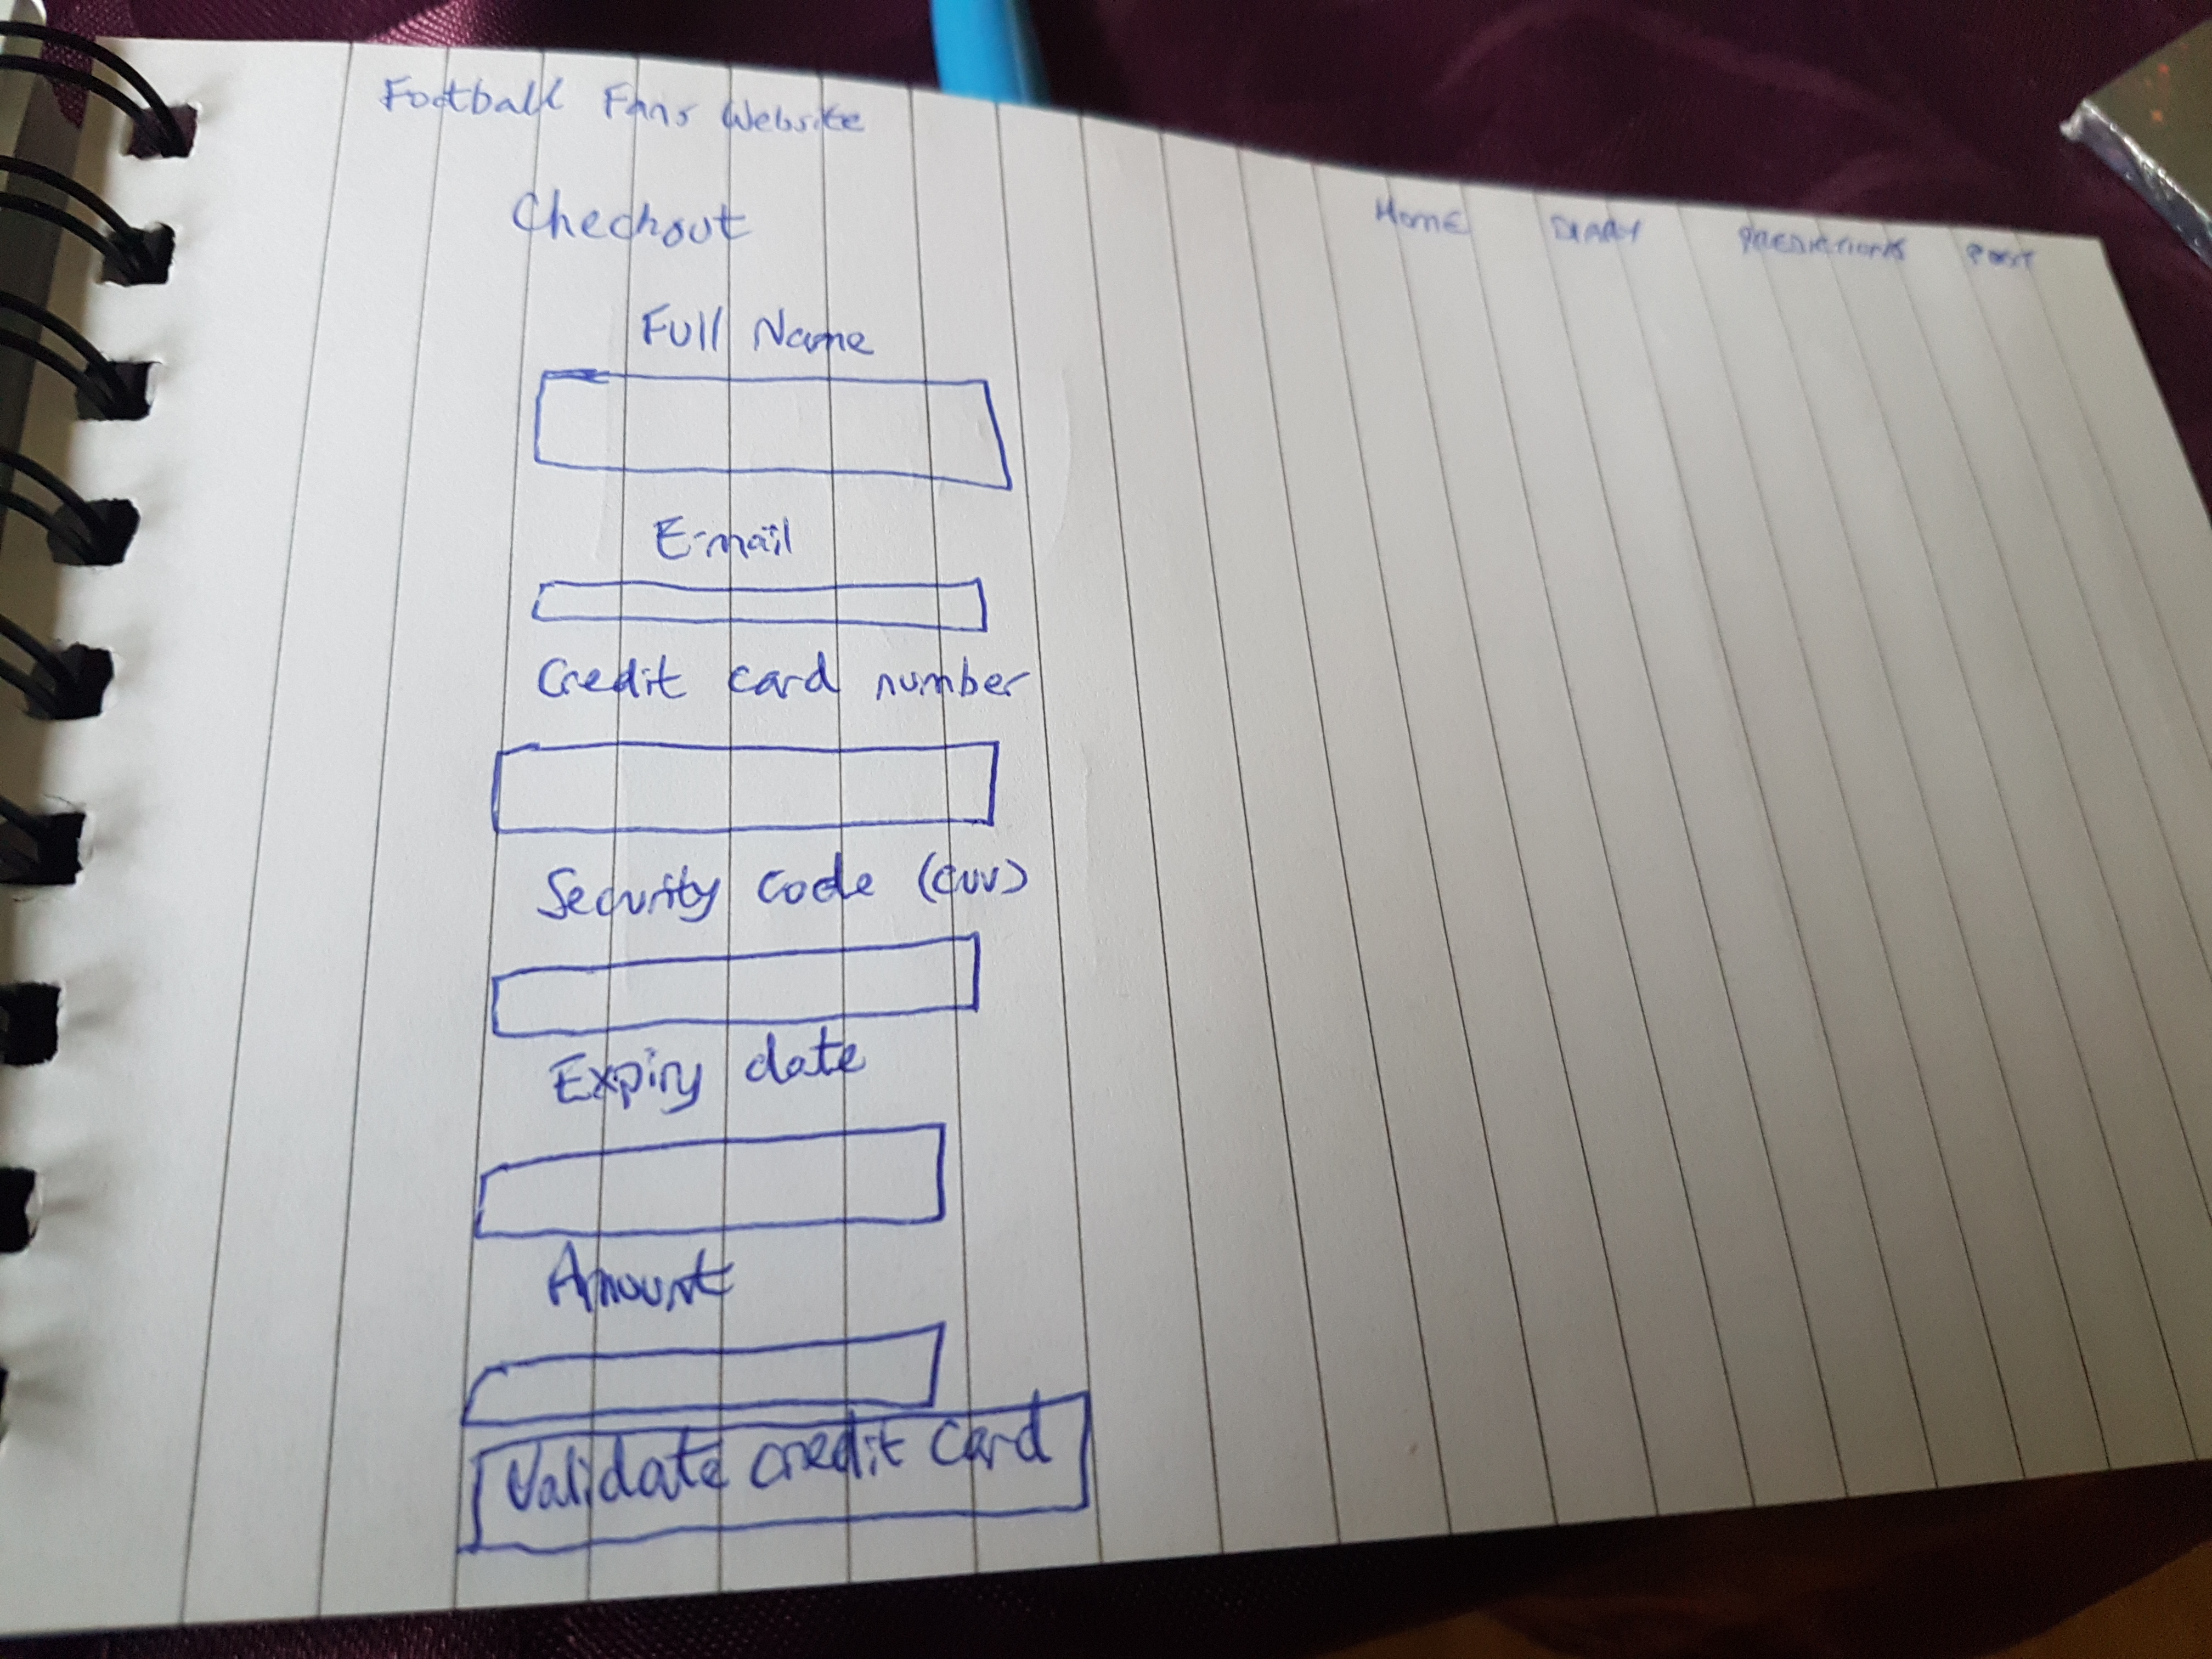 Football Fans Website
Checkout
Home DIARY PREDICTIONS POST
Full Name
E-mail
Credit card number
Security code (CVV)
Expiry date
Amount
Validate credit card